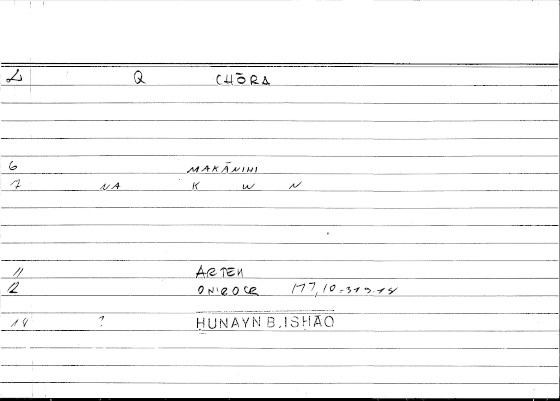 L Q CHŌRA
6 MAKĀNIHI
7 NA K W N
11 ARTEM
12 ONIROCR 177,10-313.14
14 ? HUNAYN B. ISHĀQ